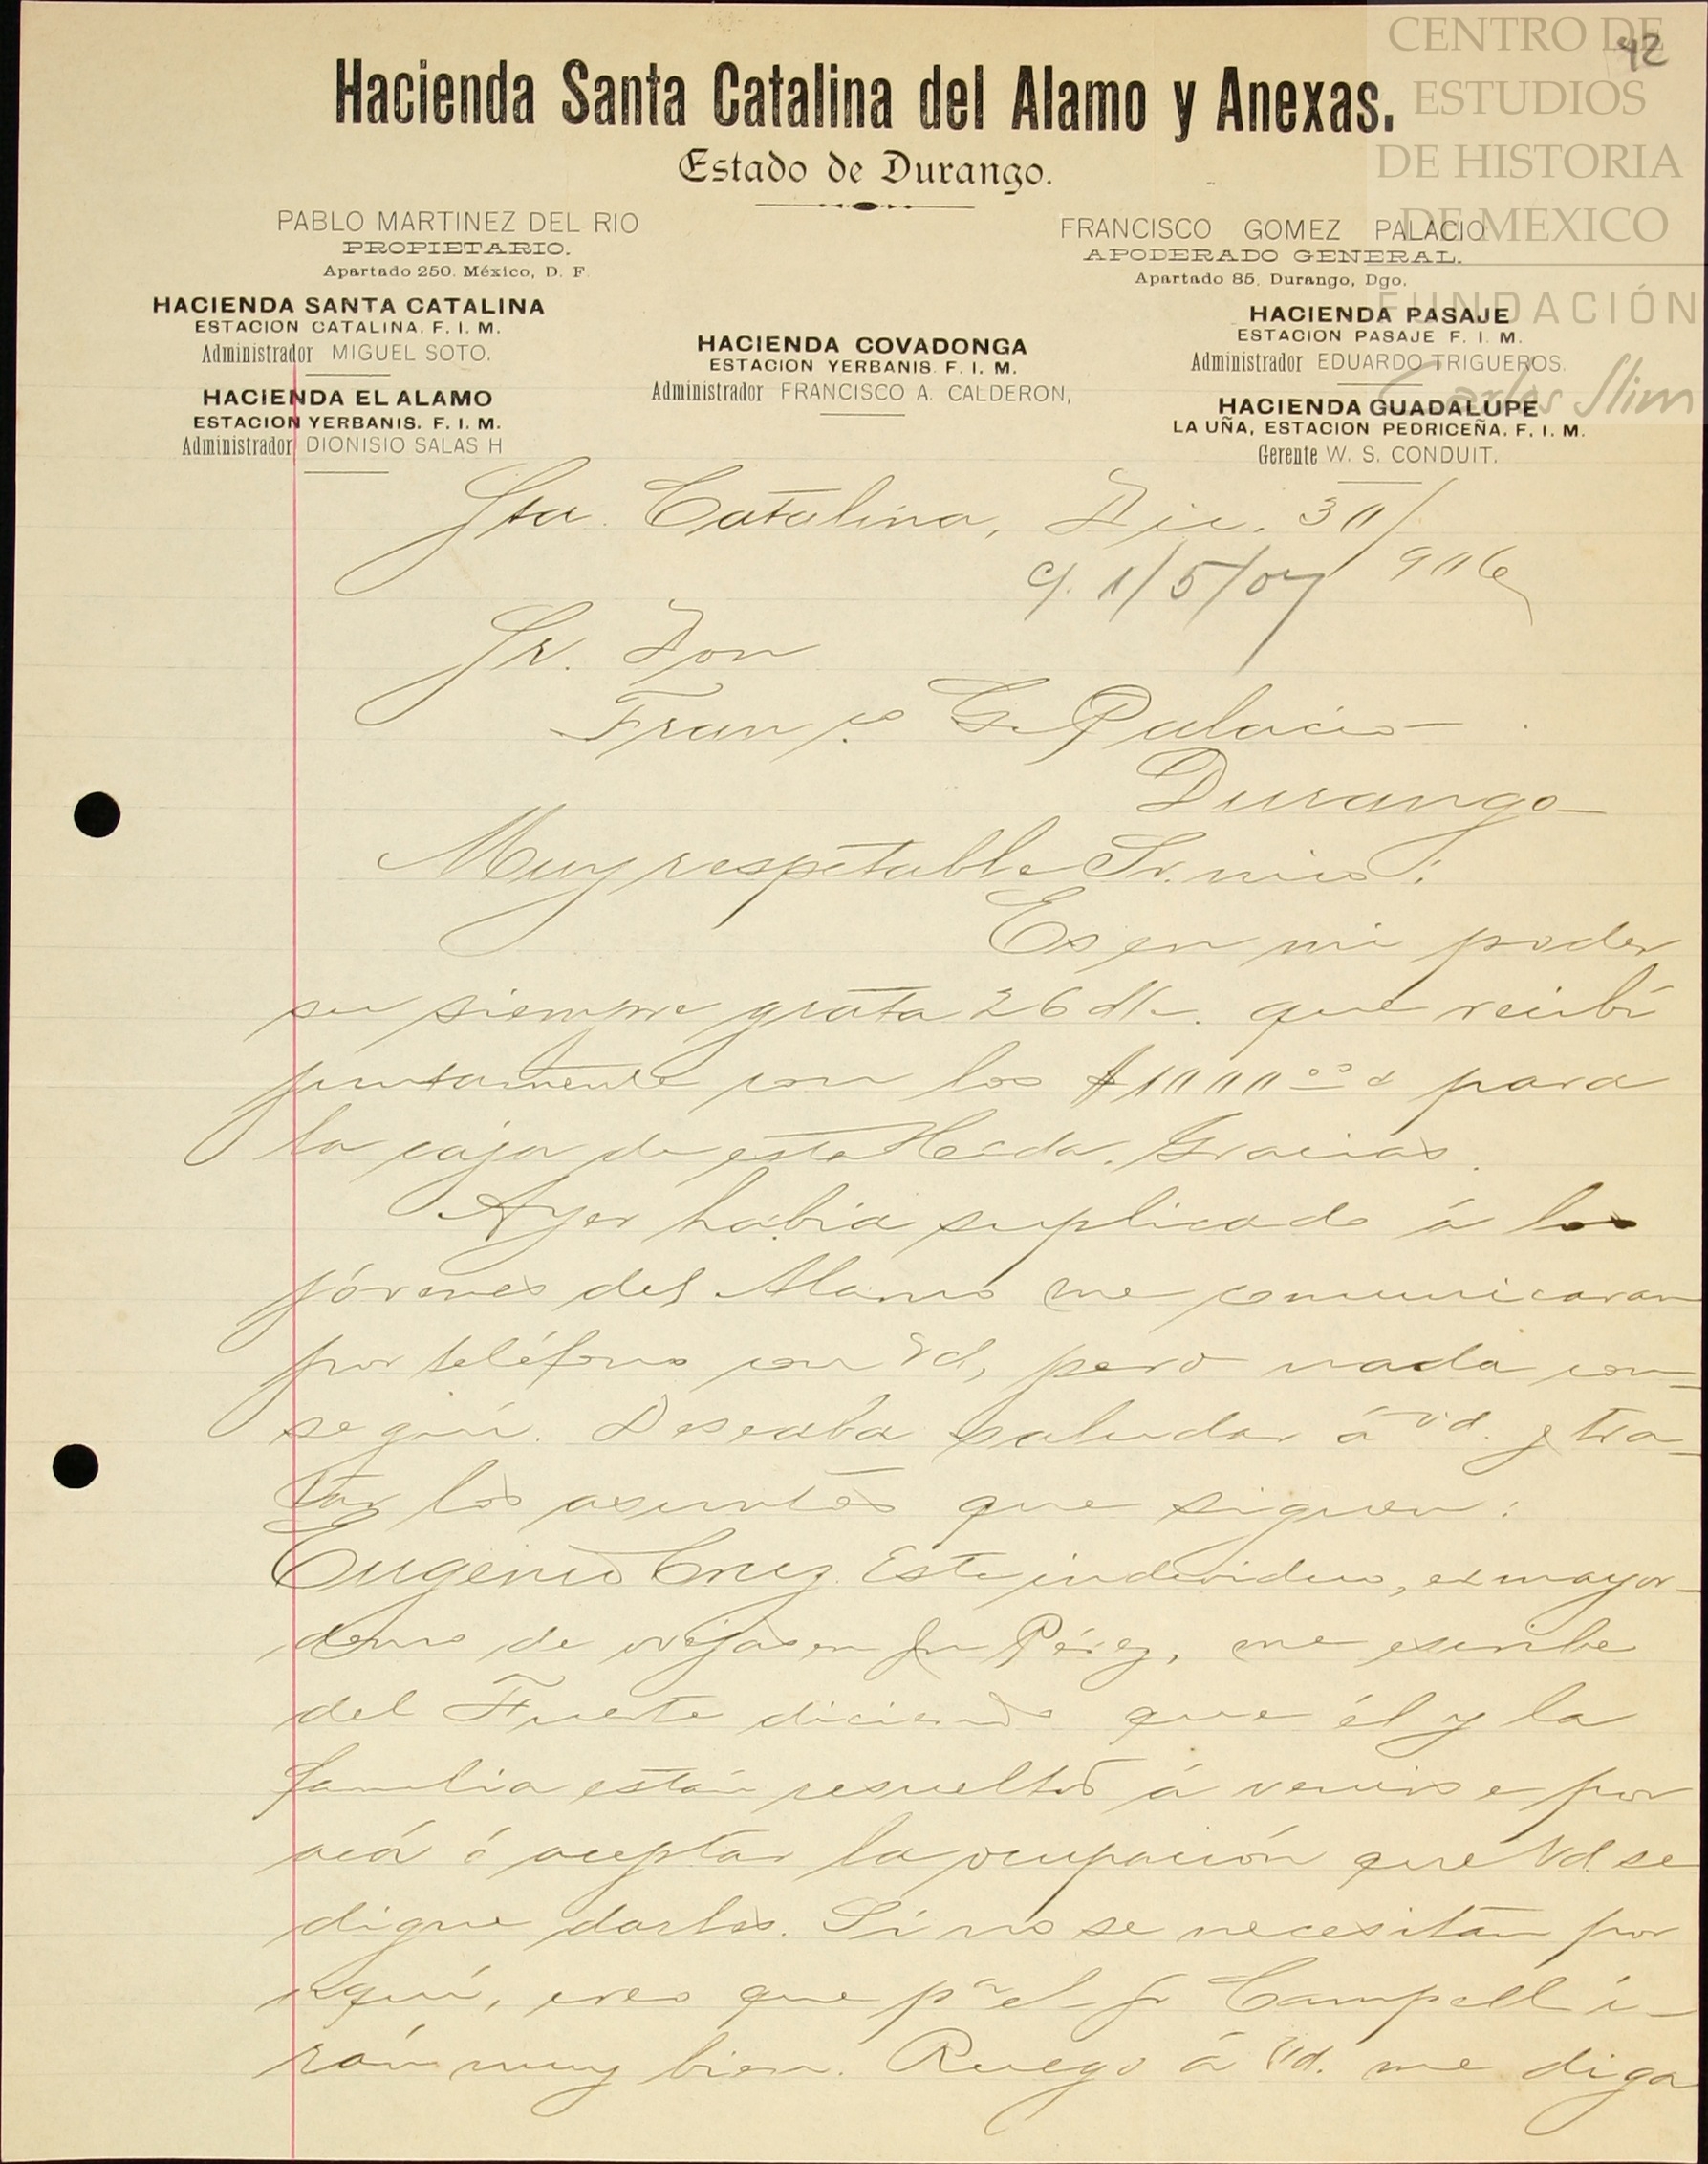 42
CENTRO DE
ESTUDIOS
DE HISTORIA
DE MEXICO
FUNDACIÓN
Carlos Slim
Hacienda Santa Catalina del Alamo y Anexas.
Estado de Durango.
PABLO MARTINEZ DEL RIO
PROPIETARIO.
Apartado 250. México, D. F.
FRANCISCO GOMEZ PALACIO
APODERADO GENERAL.
Apartado 85, Durango, Dgo.
HACIENDA SANTA CATALINA
ESTACION CATALINA. F. I. M.
Administrador MIGUEL SOTO.
HACIENDA EL ALAMO
ESTACION YERBANIS. F. I. M.
Administrador DIONISIO SALAS H
HACIENDA COVADONGA
ESTACION YERBANIS. F. I. M.
Administrador FRANCISCO A. CALDERON,
HACIENDA PASAJE
ESTACION PASAJE F. I. M.
Administrador EDUARDO TRIGUEROS.
HACIENDA GUADALUPE
LA UÑA, ESTACION PEDRICEÑA. F. I. M.
Gerente W. S. CONDUIT.
Sta. Catalina, Dic. 30/
906
c/. 1/5/07
Sr. Don
Franco G. Palacio
Durango
Muy respetable Sr. mio:
Es en mi poder
su siempre grata 26 que recibí
juntamente con los $1000 00 para
la caja de esta Hcda. Gracias.
Ayer habia suplicado á los
jóvenes del Alamo me comunicaran
por teléfono con Vd, pero nada con-
seguí. Deseaba saludar á Vd. y tra-
tar los asuntos que siguen:
Eugenio Cruz. Este individuo, ex mayor-
domo de ovejas en Jn Pérez, me escribe
del Fuerte diciendo que él y la
familia están resueltos á venirse por
acá ó aceptar la ocupación que Vd. se
digne darles. Si no se necesitan por
aquí, creo que pa el Sr Campell i-
rán muy bien. Ruego á Vd. me diga